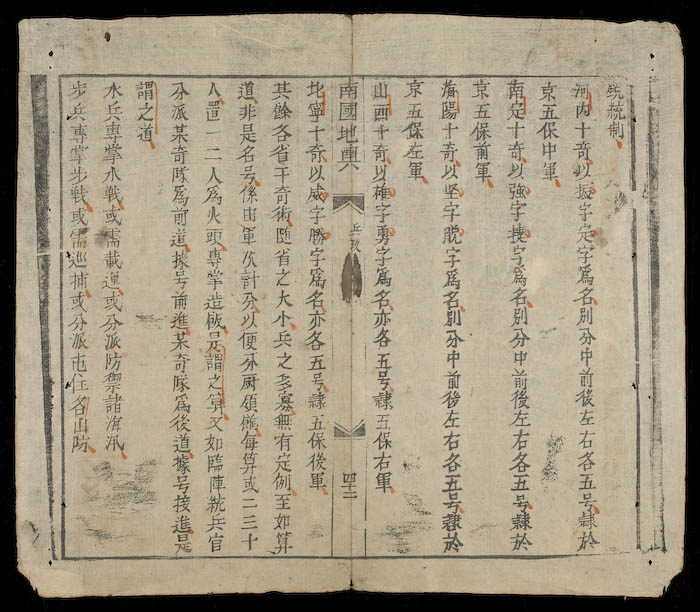 統制
河内十奇以振字定字爲名別分中前後左右各五号隷於
京五保中軍
南定十奇以強字捷字爲名別分中前後左右各五号隷於
京五保前軍
海陽十奇以坚字脫字爲名別分中前後左右各五号隷於
京五保左軍
山西十奇以雄字勇字爲名亦各五号隷五保右軍
南國地輿
兵政
四十二
北寧十奇以威字勝字爲名亦各五号隷五保後軍
其餘各省干奇術随省之大小兵之多寡無有定例至如算
道非是名号係由軍次計分以便分厨領餉每算或二三十
人置一二人爲火頭專掌造飯是謂之算又如臨陣統兵官
分派某奇隊爲前道據号前進某奇隊爲後道據号接進是
謂之道
水兵專掌水戰或需載運或分派防禦諸海汛
步兵專掌步戰或需巡捕或分派屯住各山防